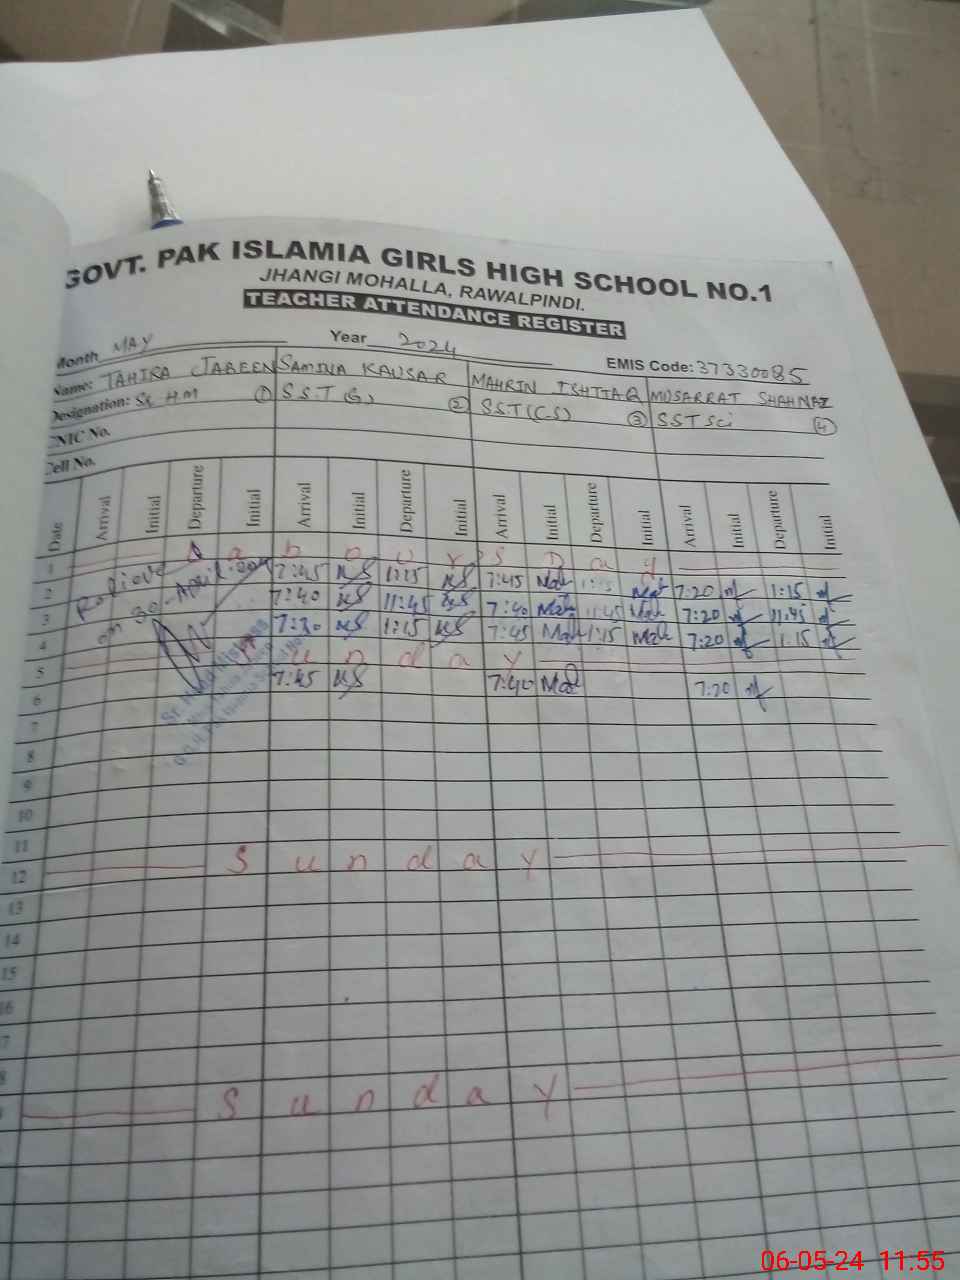 GOVT. PAK ISLAMIA GIRLS HIGH SCHOOL NO.1
JHANGI MOHALLA, RAWALPINDI.
TEACHER ATTENDANCE REGISTER
Month MAY Year 2024 EMIS Code: 37330085
Name: TAHIRA JABEEN SAMINA KAUSAR MAHRIN ISHTIAQ MUSARRAT SHAHNAZ
Designation: Sr. H.M ① S.S.T (G) ② S.S.T (CS) ③ SST Sci ④
CNIC No.
Cell No.
Date Arrival Initial Departure Initial Arrival Initial Departure Initial Arrival Initial Departure Initial Arrival Initial Departure Initial
1 Labour's Day
2 7:45 1:15 7:45 1:15 7:20 1:15
3 7:40 11:45 7:40 11:45 7:20 11:45
4 7:30 1:15 7:45 1:15 7:20 1:15
on 30-April-2024
5 Sunday
6 7:45 7:40 7:20
7
8
9
10
11
12 Sunday
13
14
15
16
7
8
Sunday
06-05-24 11.55